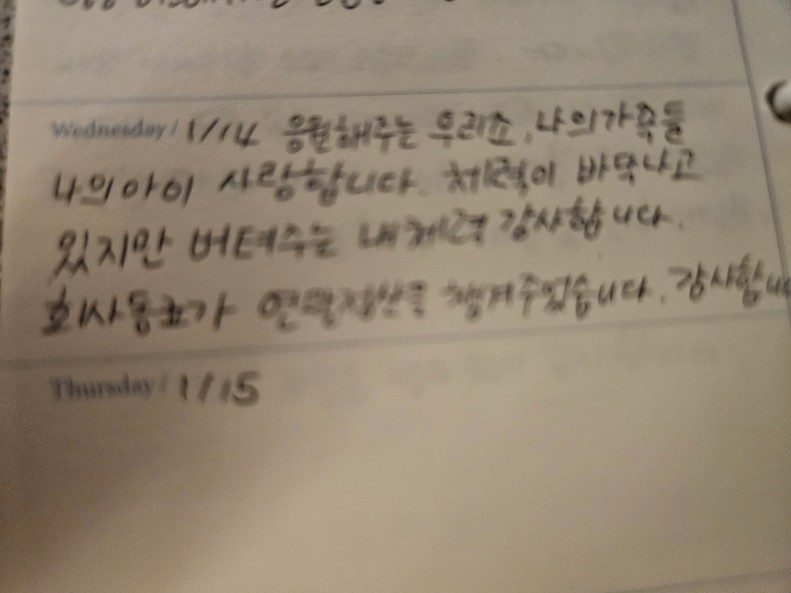 Wednesday / 1/14 응원해주는 우리쇼, 나의가족들
나의아이 사랑합니다. 체력이 바닥나고
있지만 버텨주는 내체력 감사합니다.
회사동료가 연말정산을 챙겨주었습니다. 감사합니
Thursday / 1/15